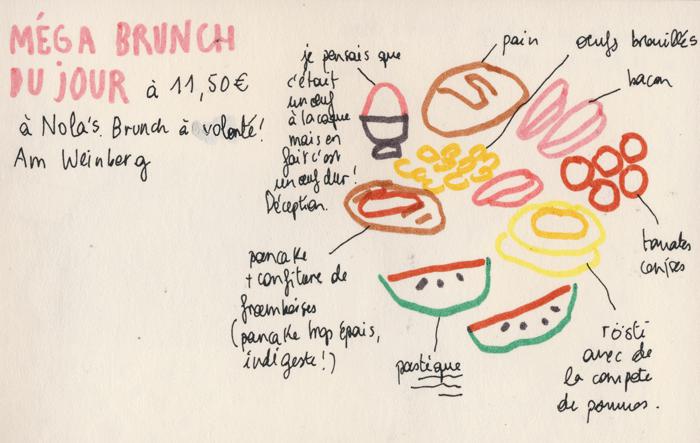 MÉGA BRUNCH
DU JOUR à 11,50€
à Nola's. Brunch à volonté!
Am Weinberg
je pensais que
c'était
un œuf
à la coque
mais en
fait c'est
un œuf dur!
Déception.
pain
œufs brouillés
bacon
tomates
cerises
rösti
avec de
la compote
de pommes.
pastèque
pancake
+ confiture de
framboises
(pancake trop épais,
indigeste!)